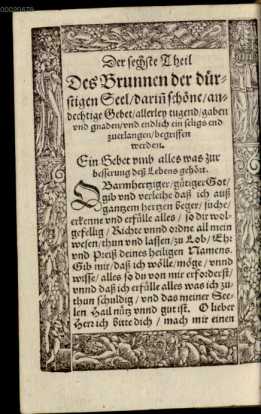 00020679
Der sechste Theil
Des Brunnen der dür-
stigen Seel/darin̄ schöne/an-
dechtige Gebet/allerley tugend/gaben
vnd gnaden/vnd endlich ein seligs end
zuerlangen/begriffen
werden.
Ein Gebet vmb alles was zur
besserung deß Lebens gehört.
O Barmhertziger/gütiger Got/
gib vnd verleihe daß ich auß
gantzem hertzen beger/suche/
erkenne vnd erfülle alles/so dir wol-
gefellig/Richte vnnd ordne all mein
wesen/thun vnd lassen/zu Lob/Ehr
vnd Preiß deines heiligen Namens.
Gib mir/daß ich wölle/möge/vnnd
wisse/alles so du von mir erforderst/
vnnd daß ich erfülle alles was ich zu-
thun schuldig/vnd das meiner See-
len Hail nütz vnnd gut ist. O lieber
Herr ich bitte dich/mach mir einen